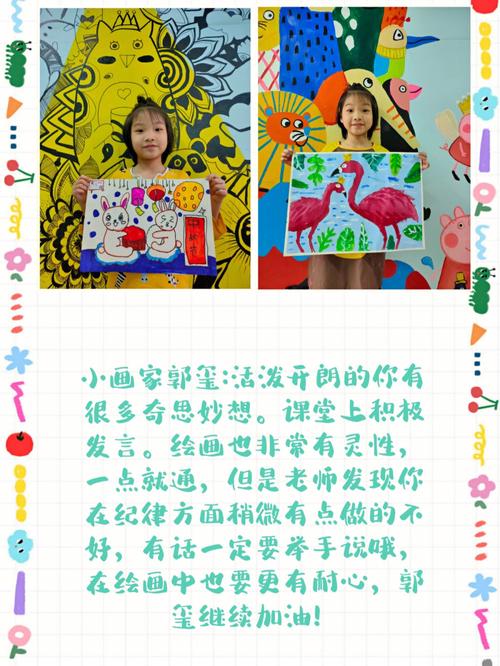 中秋节
小画家郭玺:活泼开朗的你有
很多奇思妙想。课堂上积极
发言。绘画也非常有灵性,
一点就通,但是老师发现你
在纪律方面稍微有点做的不
好,有话一定要举手说哦,
在绘画中也要更有耐心,郭
玺继续加油!